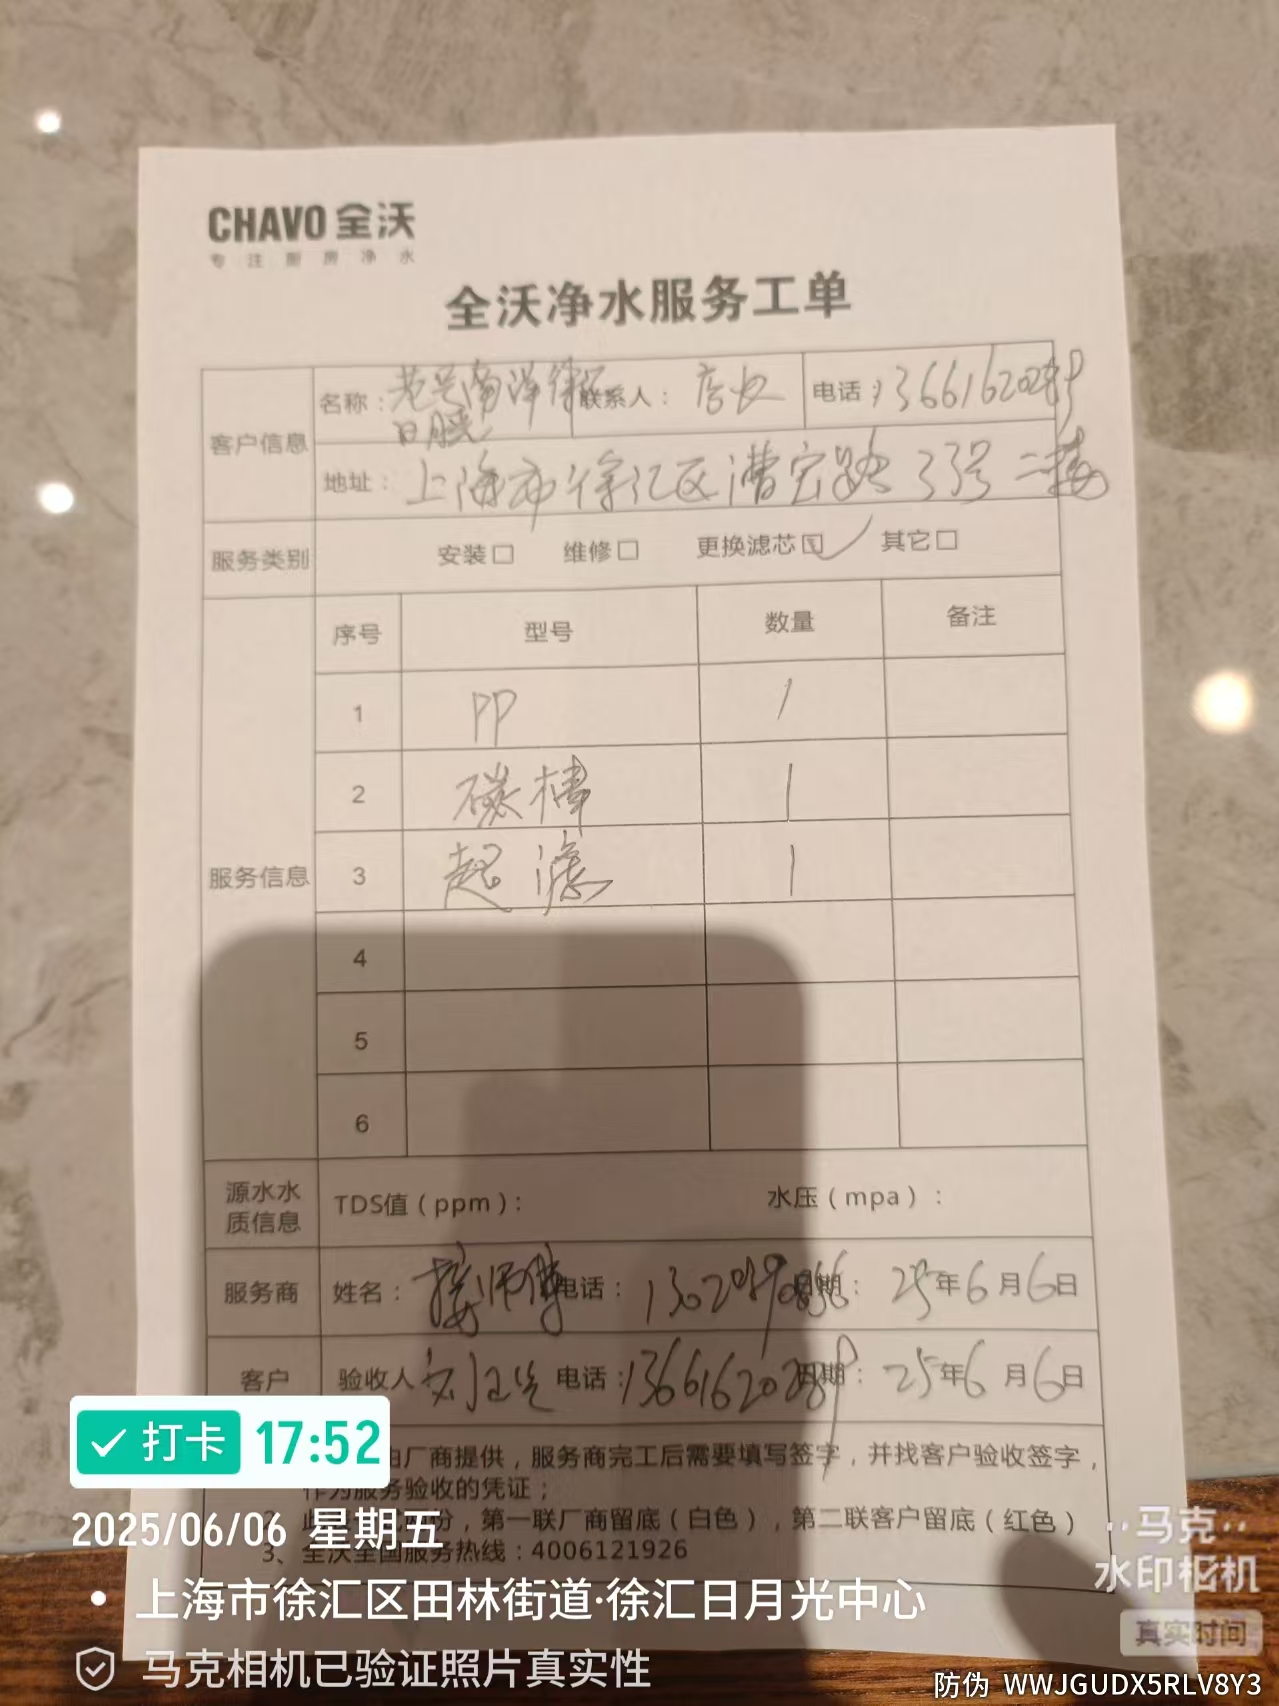 CHAVO 全沃
专注厨房净水
全沃净水服务工单
客户信息 名称： 联系人：店长 电话：
日月光
地址：上海市徐汇区漕宝路33号二楼
服务类别 安装□ 维修□ 更换滤芯☑ 其它□
服务信息 序号 型号 数量 备注
1 PP 1
2 碳棒 1
3 超滤 1
4
5
6
源水水质信息 TDS值（ppm）： 水压（mpa）：
服务商 姓名： 师傅 电话： 日期：25年6月6日
客户 验收人 电话：13661620289 日期：25年6月6日
由厂商提供，服务商完工后需要填写签字，并找客户验收签字，
作为服务验收的凭证；
份，第一联厂商留底（白色），第二联客户留底（红色）
3、全沃全国服务热线：4006121926
打卡 17:52
2025/06/06 星期五
上海市徐汇区田林街道·徐汇日月光中心
马克相机已验证照片真实性
马克
水印相机
真实时间
防伪 WWJGUDX5RLV8Y3